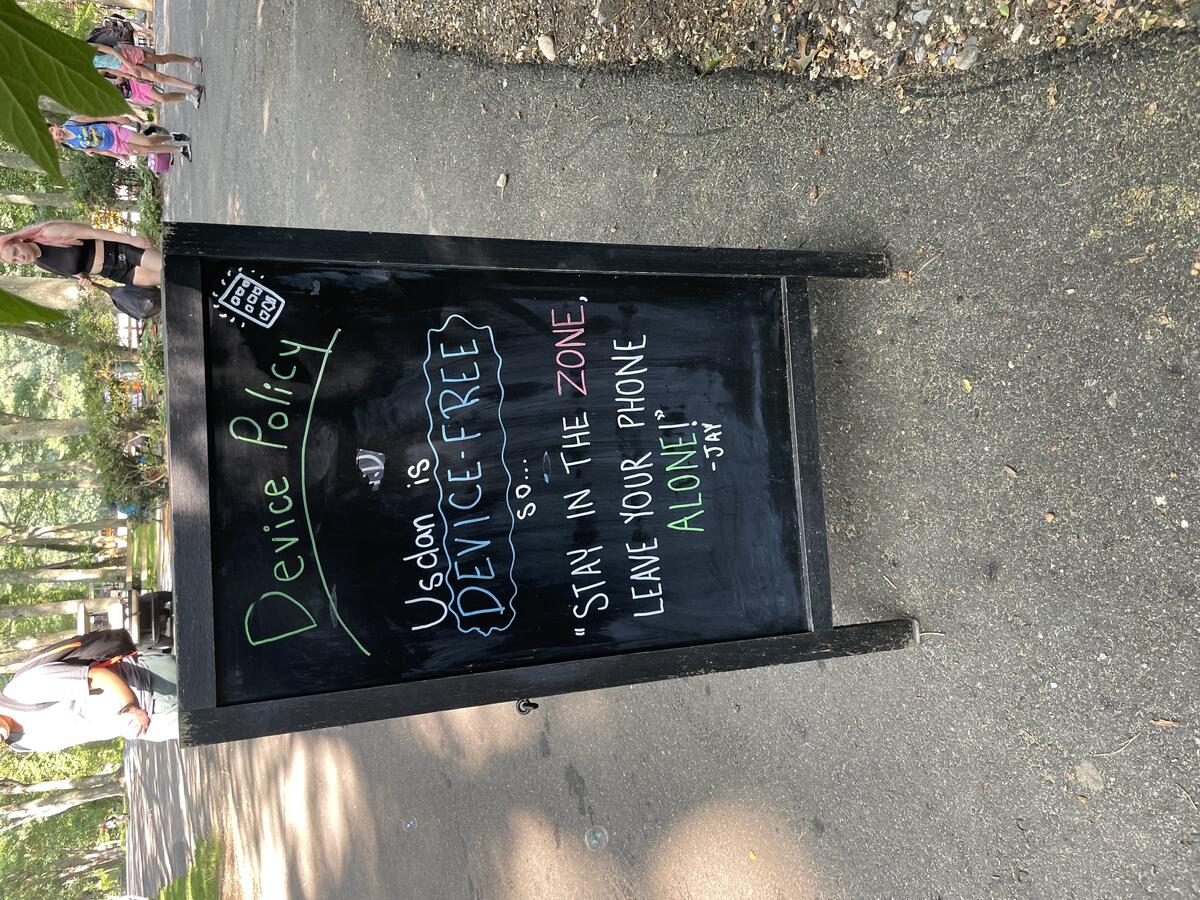 Device Policy
:D
Usdan is
DEVICE-FREE
so...
"STAY IN THE ZONE,
LEAVE YOUR PHONE
ALONE!"
-JAY